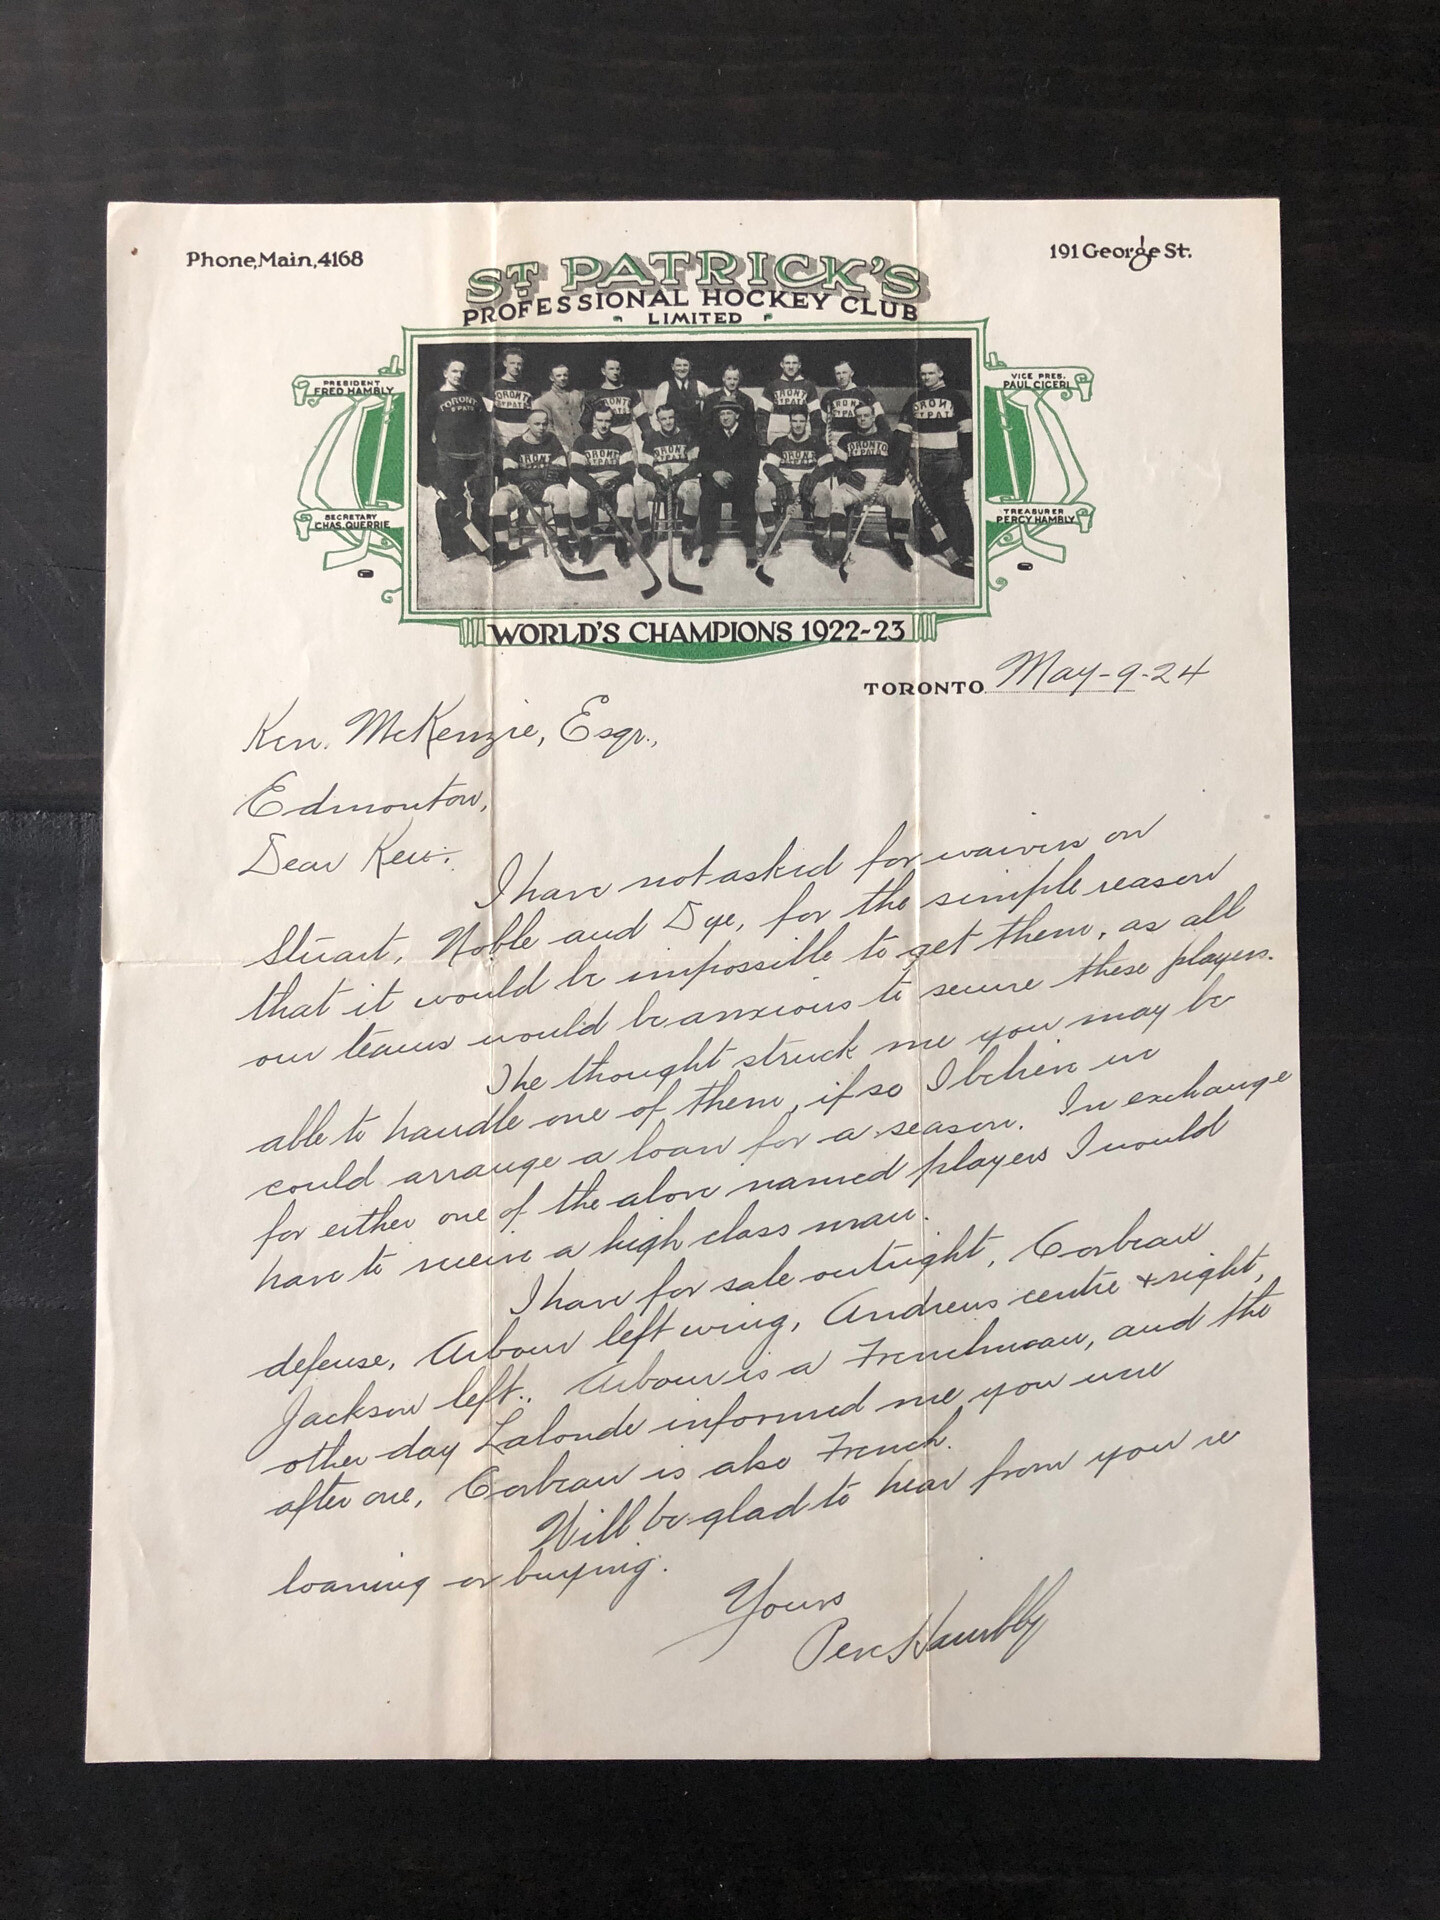 Phone, Main, 4168
191 George St.
ST PATRICK'S
PROFESSIONAL HOCKEY CLUB
LIMITED
PRESIDENT
FRED HAMBLY
VICE PRES.
PAUL CICERI
SECRETARY
CHAS. QUERRIE
TREASURER
PERCY HAMBLY
WORLD'S CHAMPIONS 1922-23
TORONTO May-9-24
Ken. McKenzie, Esqr.,
Edmonton,
Dear Ken:
I have not asked for waivers on
Stuart, Noble and Dye, for the simple reason
that it would be impossible to get them, as all
our teams would be anxious to secure these players.
The thought struck me you may be
able to handle one of them, if so I believe we
could arrange a loan for a season. In exchange
for either one of the above named players I would
have to receive a high class man.
I have for sale outright, Corbeau
defense, Arbour left wing, Andrews centre & right,
Jackson left. Arbour is a Frenchman, and the
other day Lalonde informed me you were
after one, Corbeau is also French.
Will be glad to hear from you re
loaning or buying.
Yours
Perc Hambly